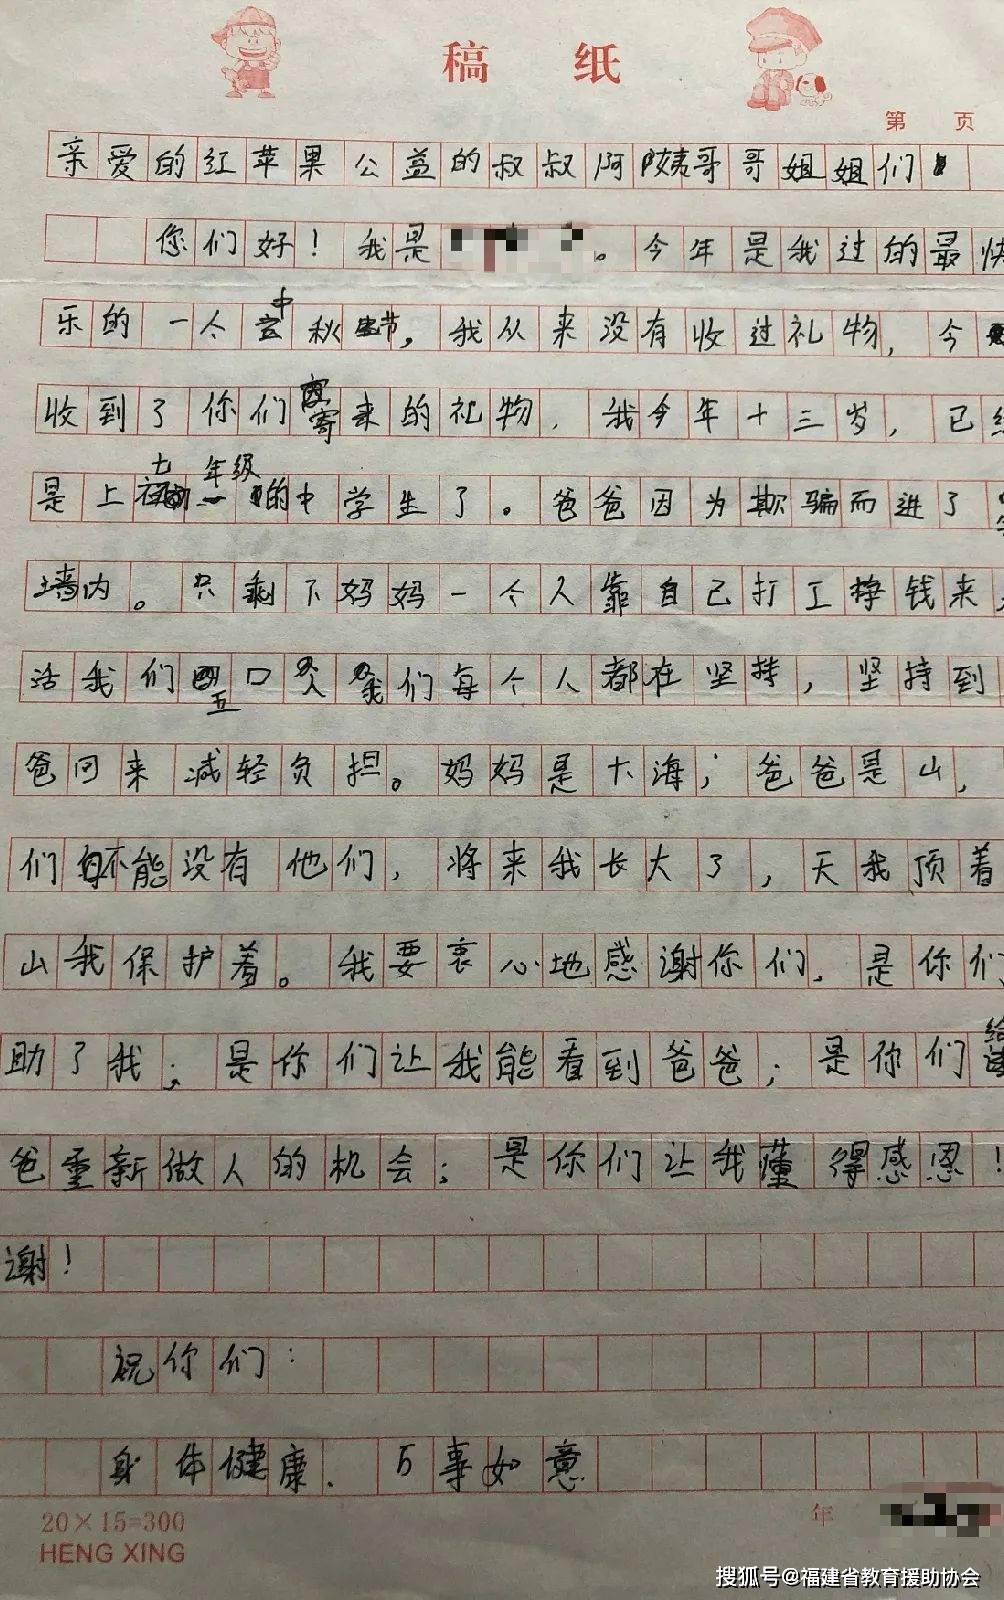 稿 纸
第 页
亲爱的红苹果公益的叔叔阿姨哥哥姐姐们
您们好！我是 。今年是我过的最快
乐的一个中秋节，我从来没有收过礼物，今
收到了你们寄来的礼物，我今年十三岁，已经
是上七年级的中学生了。爸爸因为欺骗而进了
墙内。只剩下妈妈一个人靠自己打工挣钱来
活我们五口人我们每个人都在坚持，坚持到
爸回来减轻负担。妈妈是大海；爸爸是山，
们不能没有他们，将来我长大了，天我顶着
山我保护着。我要衷心地感谢你们，是你们
助了我；是你们让我能看到爸爸；是你们给
爸重新做人的机会；是你们让我懂得感恩！
谢！
祝你们：
身体健康、万事如意
年
20×15=300
HENG XING
搜狐号@福建省教育援助协会